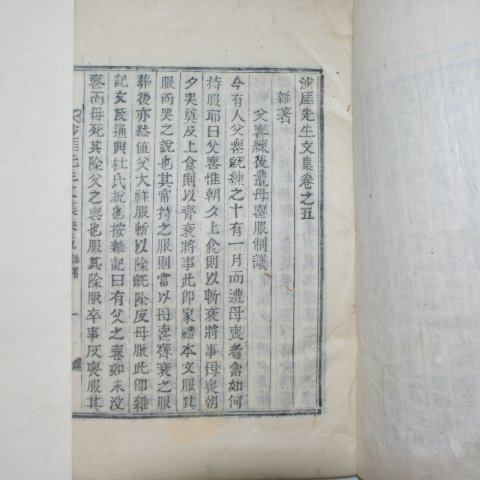 沙厓先生文集卷之五
雜著
父喪練後遭母喪服制議
今有人父喪旣練之十有一月而遭母喪者當如何
持服耶曰父喪惟朝夕上食則以斬衰將事母喪朝
夕哭奠反上食則以齊衰將事此卽家禮本文服其
服而哭之說也其常持之服則當以母喪齊衰之服
葬後亦然値父大祥服斬以除旣除反母服此卽雜
記文及通典杜氏說也按雜記曰有父之喪如未沒
喪而母死其除父之喪也服其除服卒事反喪服其
沙厓先生文集卷五 雜著 一